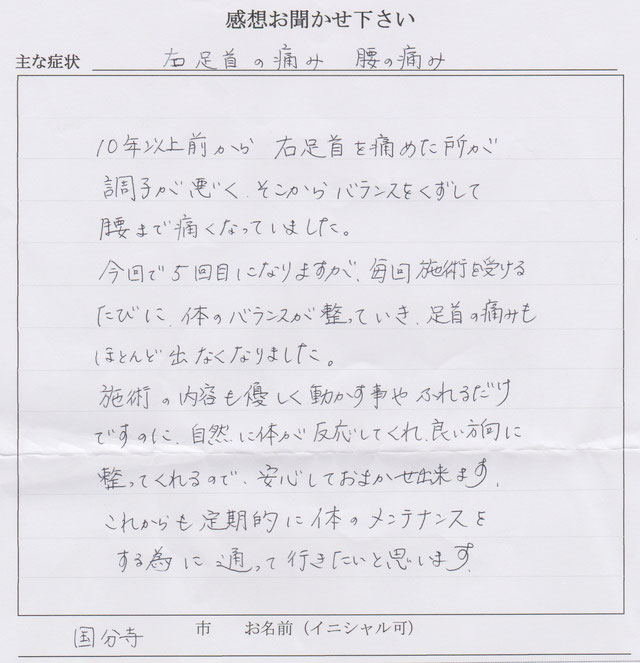 感想お聞かせ下さい
主な症状 右足首の痛み 腰の痛み
10年以上前から 右足首を痛めた所が
調子が悪く、そこからバランスをくずして
腰まで痛くなっていました。
今回で5回目になりますが、毎回施術を受ける
たびに、体のバランスが整っていき、足首の痛みも
ほとんど出なくなりました。
施術の内容も優しく動かす事やふれるだけ
ですのに、自然に体が反応してくれ、良い方向に
整ってくれるので、安心しておまかせ出来ます。
これからも定期的に体のメンテナンスを
する為に通って行きたいと思います。
国分寺 市 お名前（イニシャル可）